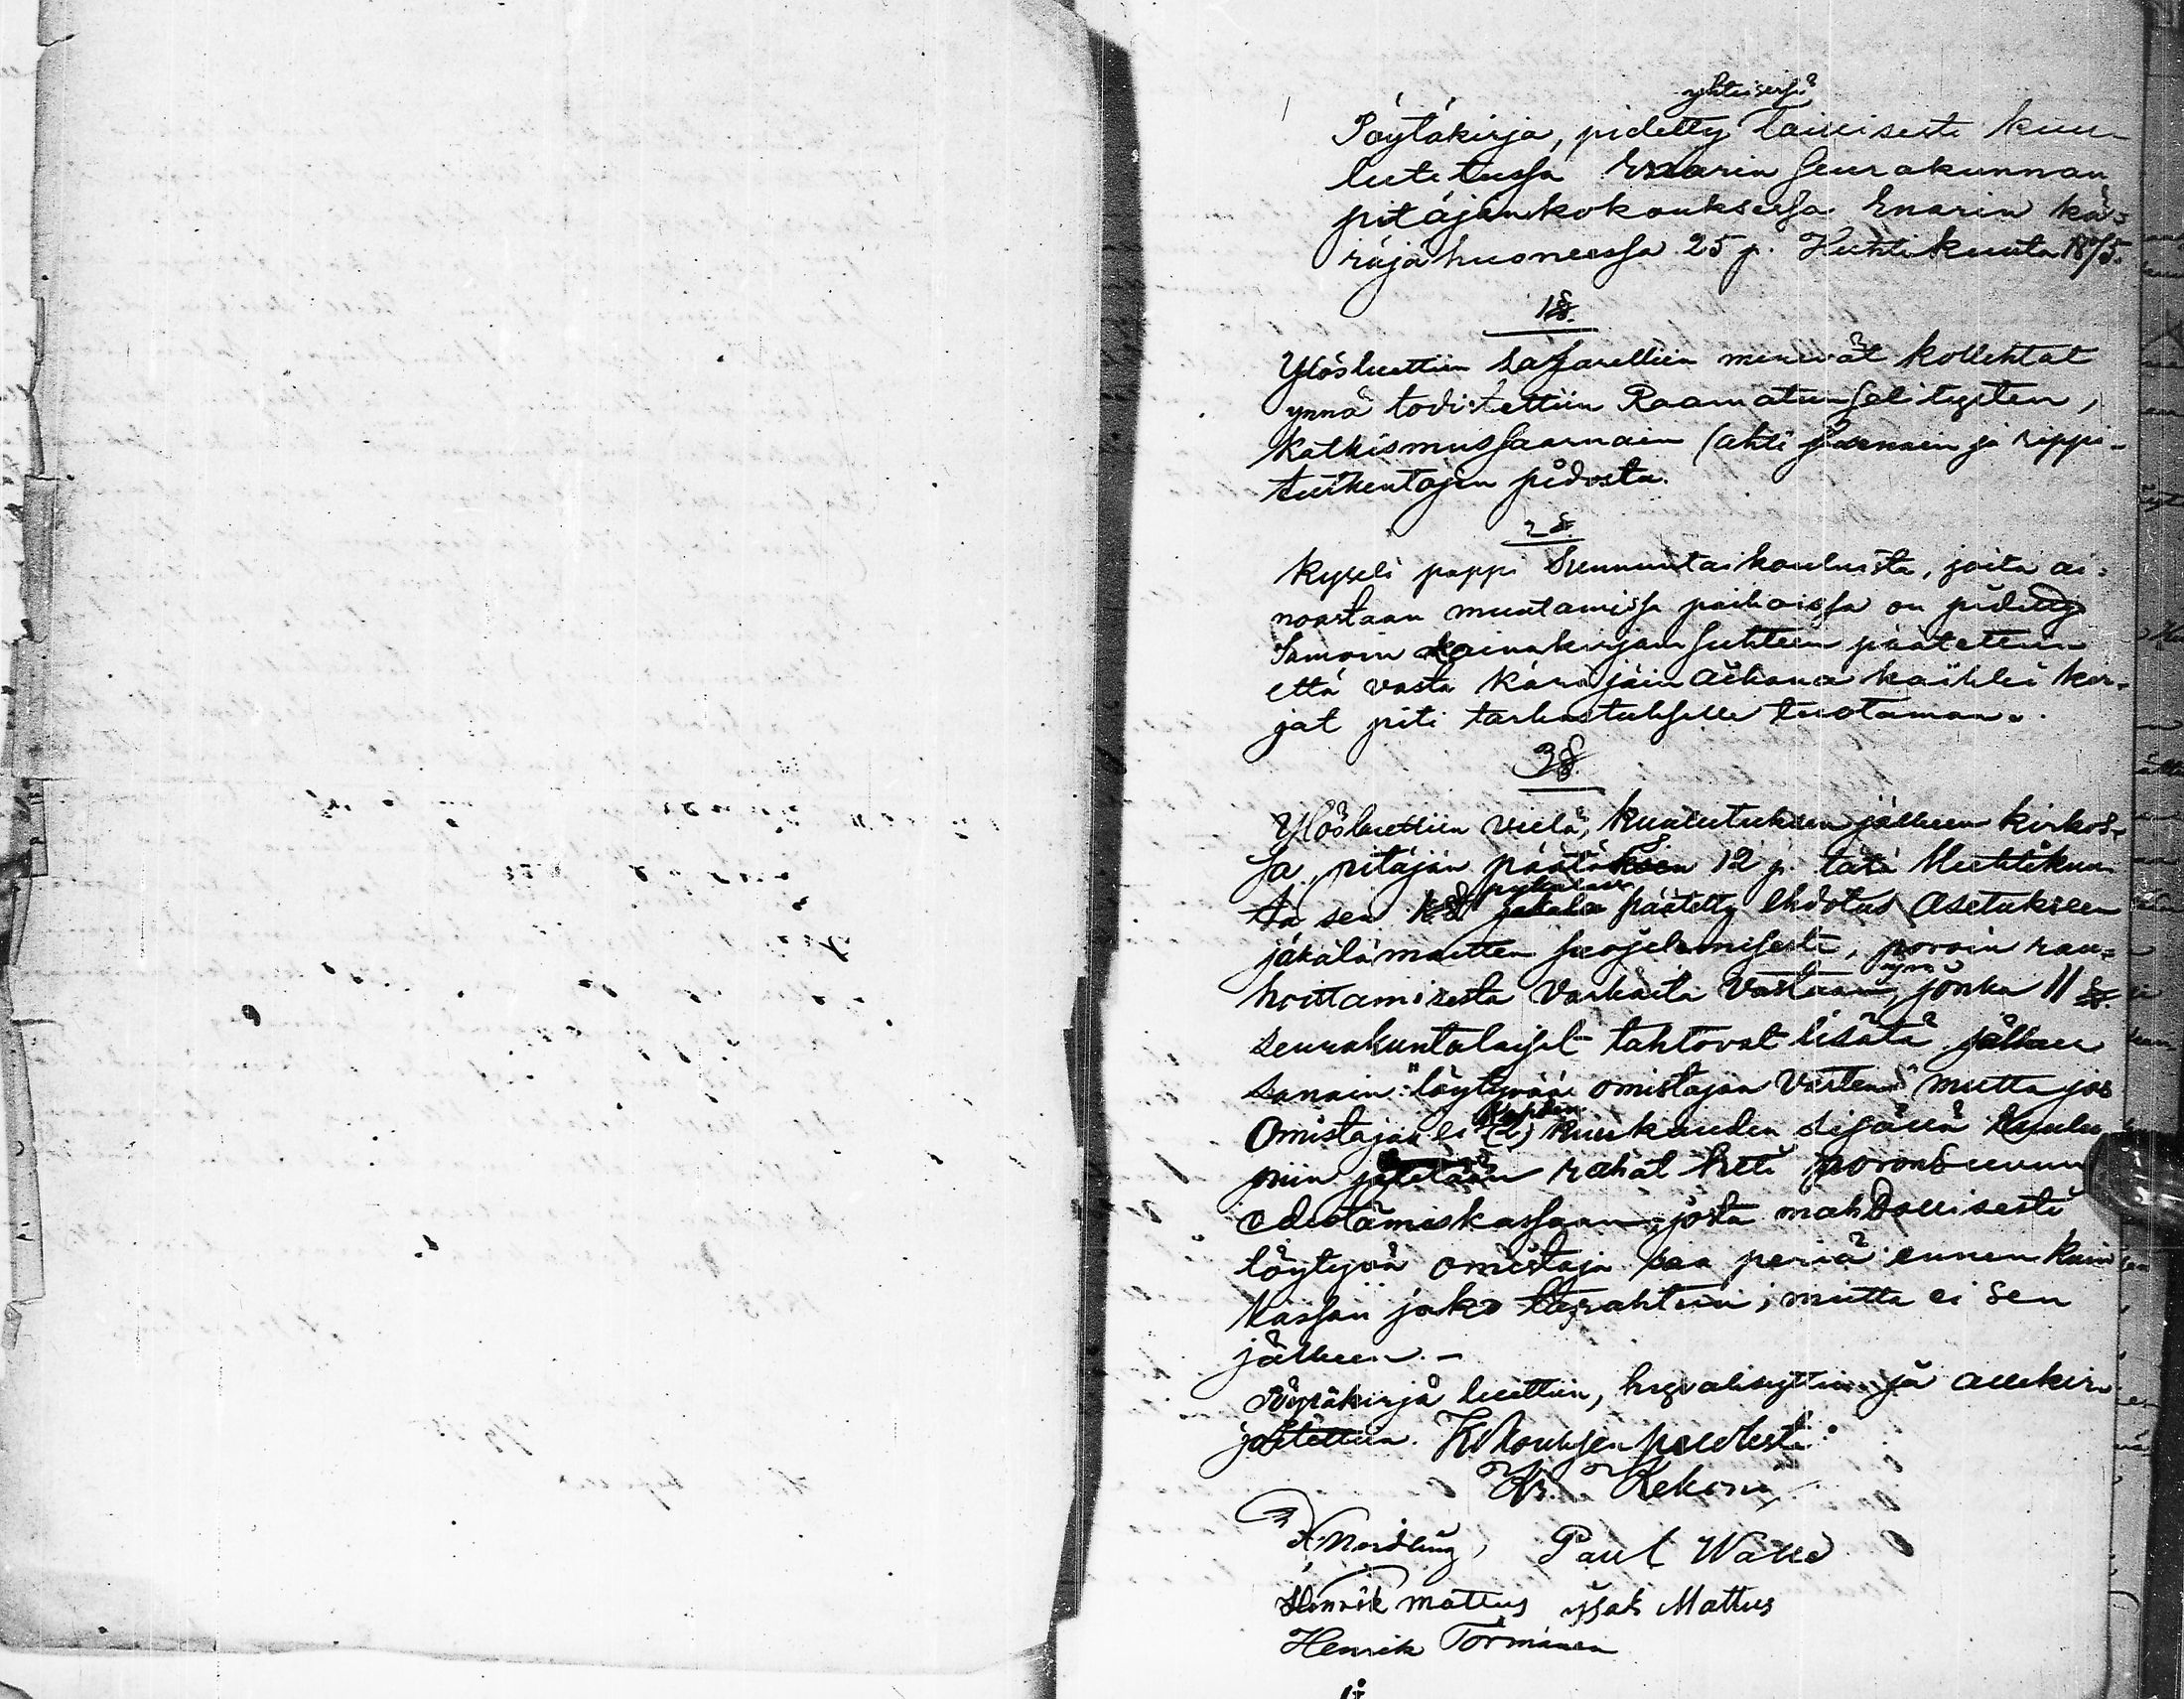 yhteisessä
Pöytäkirja, pidetty laillisesti kuu-
lutetussa Enarin seurakunnan
pitäjänkokouksessa Enarin kä-
räjähuoneessa 25 p. Huhtikuuta 1875.
1 §.
Ylösluettiin Lazarettiin menevät kollehtat
ynnä todistettiin Raamatunselitysten,
katkismussaarnain (ahti saarnain ja rippi-
tutkentojen pidosta.
2 §.
Kyseli pappi Sunnuntaikouluista, joita ai-
noastaan muutamissa paikoissa on pidetty
Samoin lainakirjain suhteen päätettiin
että vasta Käräjäin aikana kaikki kir-
jat piti tarkastukselle tuotaman.
3 §.
Ylösluettiin vielä, kuulutuksen jälkeen kirkos-
sa, pitäjän 12 p. tätä Huhtikuu-
ta sen päätetty ehdotus Asetukseen
jäkälämaitten suojelemisesta, poroin rau-
ynn.
hoittamisesta Varkaita Vastaan, jonka 11 §.
seurakuntalaiset tahtovat lisätä jälkeen
sanain: "löytyvää omistajan Varten" mutta jos
Kahden
Omistajan ei (2) kuukauden sisässä kuulu
niin rahat heti poron
edistämiskassaan, josta mahdollisesti
löytyvä omistaja saa periä ennen kuin
kassan jako tapahtuu, mutta ei sen
jälkeen. -
Pöytäkirja luettiin, hyväksyttiin ja allekir-
joitettiin. Kokouksen puolesta:
Kekoni
Nordling, Paul Walle
Henrik Mattus Isak Mattus
Henrik Törmänen